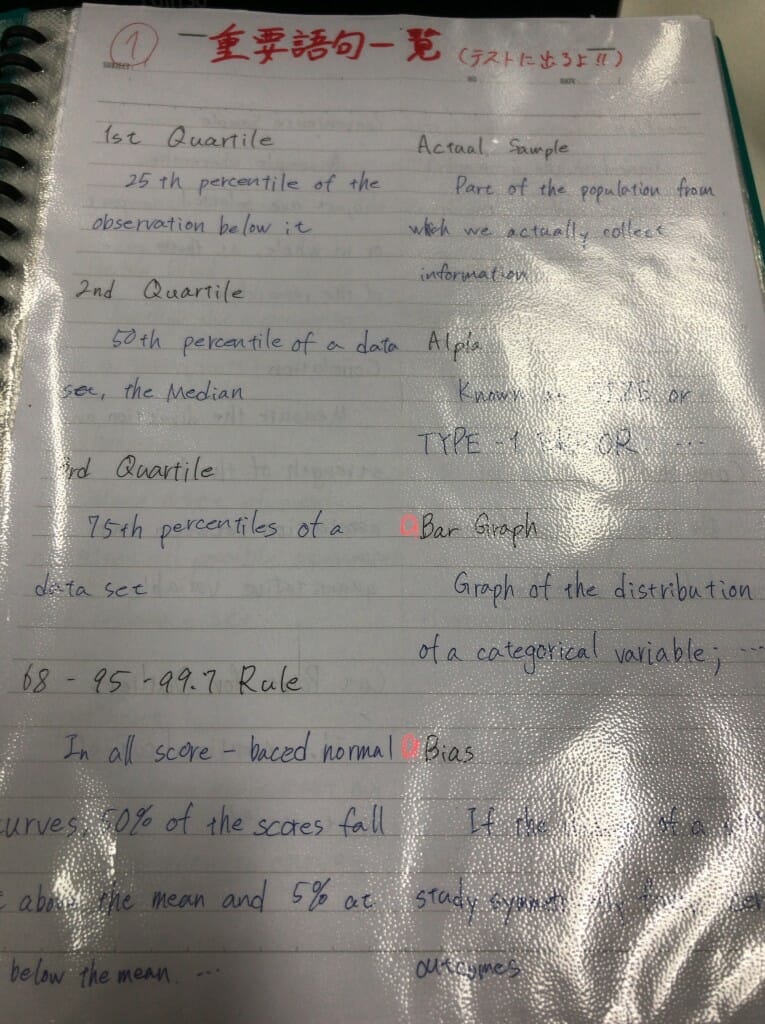 ① 重要語句一覧 (テストに出るよ!!)
1st Quartile
25th percentile of the
observation below it
2nd Quartile
50th percentile of a data
set, the Median
3rd Quartile
75th percentiles of a
data set
68-95-99.7 Rule
In all score-baced normal
curves, 50% of the scores fall
above the mean and 5% at
below the mean. ...
Actual Sample
Part of the population from
which we actually collect
information
Known or
TYPE-1 ERROR ...
Bar Graph
Graph of the distribution
of a categorical variable; ...
Bias
If the of a
study
outcomes